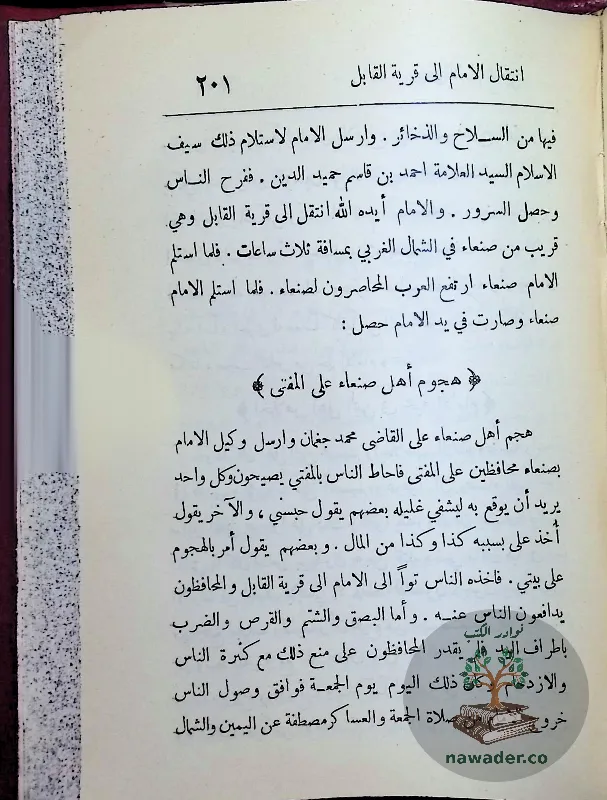 انتقال الامام الى قرية القابل ٢٠١
فيها من الســلاح والذخائر . وارسل الامام لاستلام ذلك سيف
الاسلام السيد العلامة احمد بن قاسم حميد الدين . ففرح النــاس
وحصل السرور . والامام أيده الله انتقل الى قرية القابل وهي
قريب من صنعاء في الشمال الغربي بمسافة ثلاث ساعات . فلما استلم
الامام صنعاء ارتفع العرب المحاصرون لصنعاء . فلما استلم الامام
صنعاء وصارت في يد الامام حصل :
﴿ هجوم أهل صنعاء على المفتى ﴾
هجم أهل صنعاء على القاضى محمد جغمان وارسل وكيل الامام
بصنعاء محافظين على المفتى فاحاط الناس بالمفتي يصيحون وكل واحد
يريد أن يوقع به ليشفي غليله بعضهم يقول حبسني ، والآخر يقول
أُخذ على بسببه كذا وكذا من المال . وبعضهم يقول أمر بالهجوم
على بيتي . فاخذه الناس تواً الى الامام الى قرية القابل والمحافظون
يدافعون الناس عنــه . وأما البصق والشتم والقرص والضرب
باطراف اليد فلم يقدر المحافظون على منع ذلك مع كثرة الناس
والازدحام وكان ذلك اليوم يوم الجمعــة فوافق وصول الناس
خرو صلاة الجمعة والعساكر مصطفة عن اليمين والشمال
نوادر الكتب
nawader.co